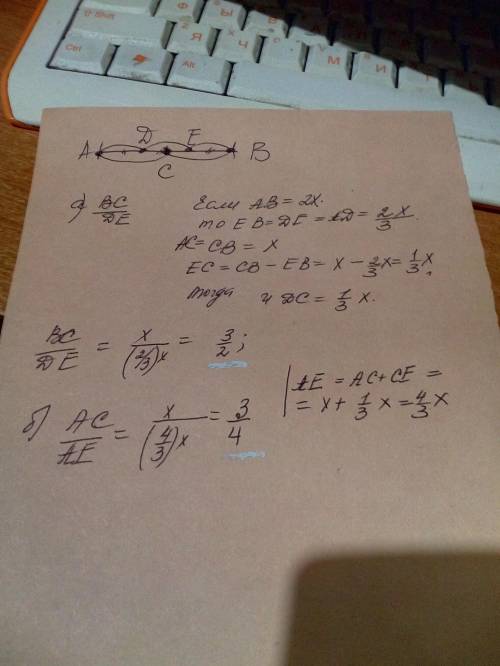 Shift
Ctrl
Alt
Ф
Ы
Я
Ч
С
М
И
A D E B
C
а) BC/DE
Если AB = 2x.
то EB = DE = AD = 2x/3.
AC = CB = x
EC = CB - EB = x - 2/3x = 1/3x,
тогда и DC = 1/3 x.
BC/DE = x/(2/3)x = 3/2;
б) AC/AE = x/(4/3)x = 3/4
AE = AC + CE =
= x + 1/3 x = 4/3 x